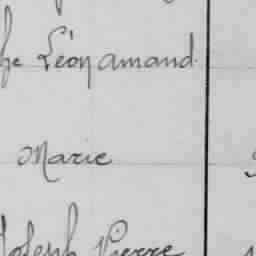 Léon amand
Marie
Joseph Pierre